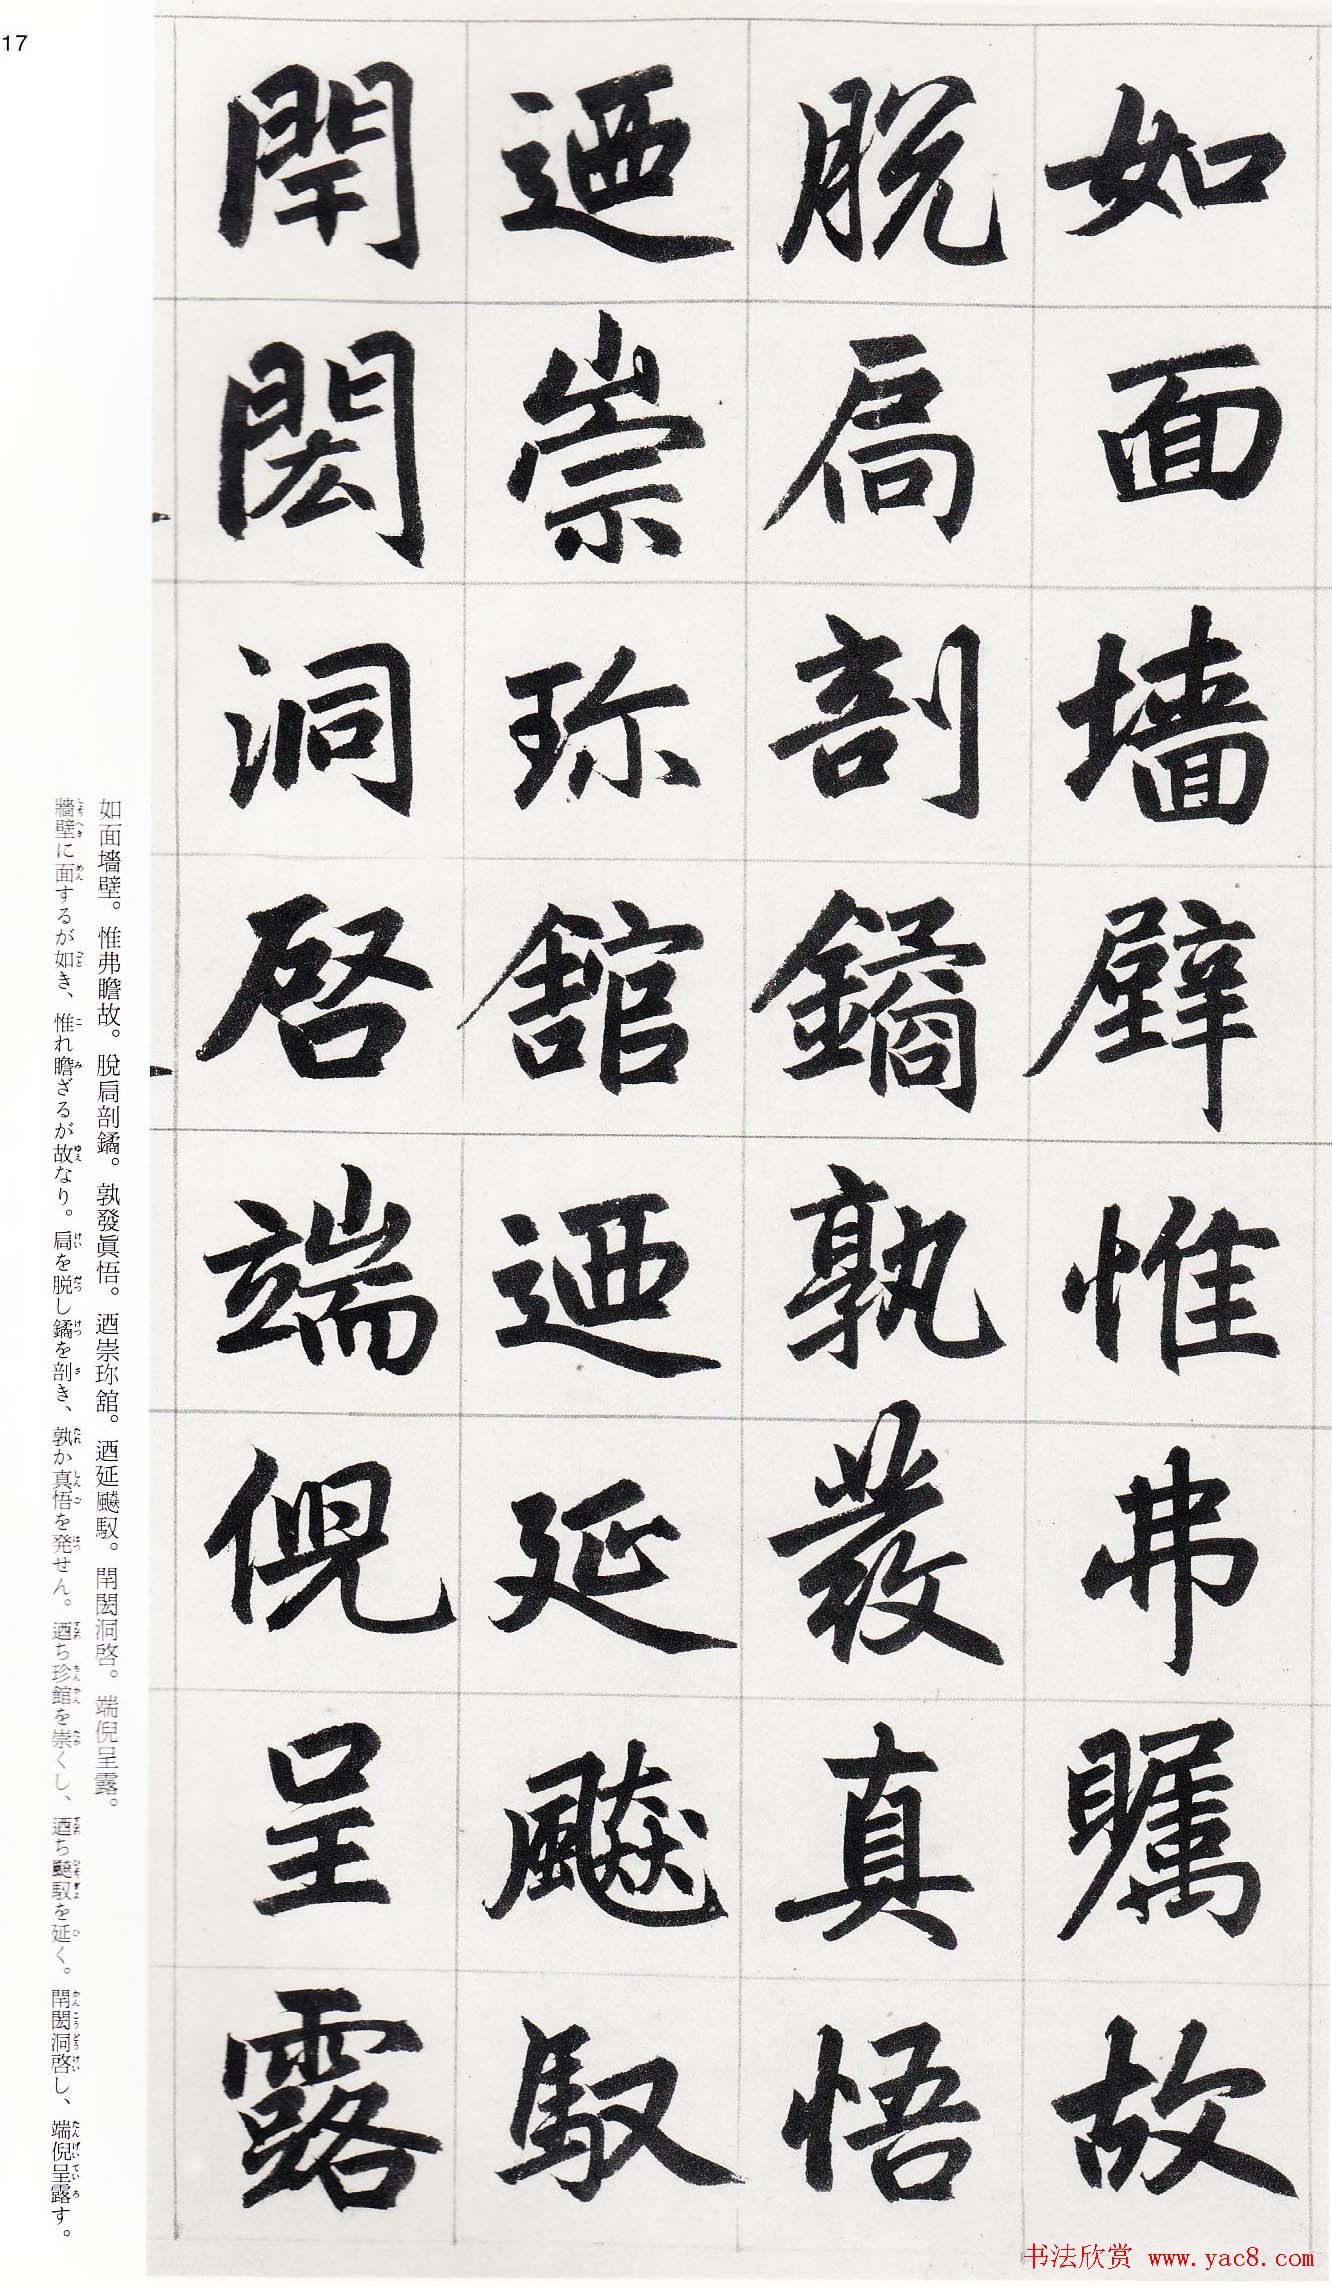 如面墻壁惟弗矚故
脱扃剖鐍孰發真悟
迺崇珎舘迺延飈馭
閈閎洞啓端倪呈露
如面墻壁。惟弗瞻故。脫扃剖鐍。孰發眞悟。迺崇珎舘。迺延飈馭。閈閎洞啓。端倪呈露。
牆壁に面するが如き、惟れ瞻ざるが故なり。扃を脱し鐍を剖き、孰か真悟を発せん。迺ち珍館を崇くし、迺ち飈馭を延く。閈閎洞啓し、端倪呈露す。
17
书法欣赏 www.yac8.com